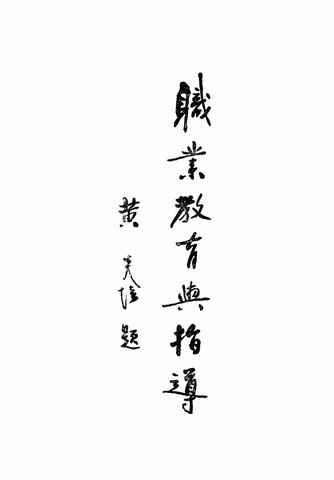 職業教育與指導
黃炎培題